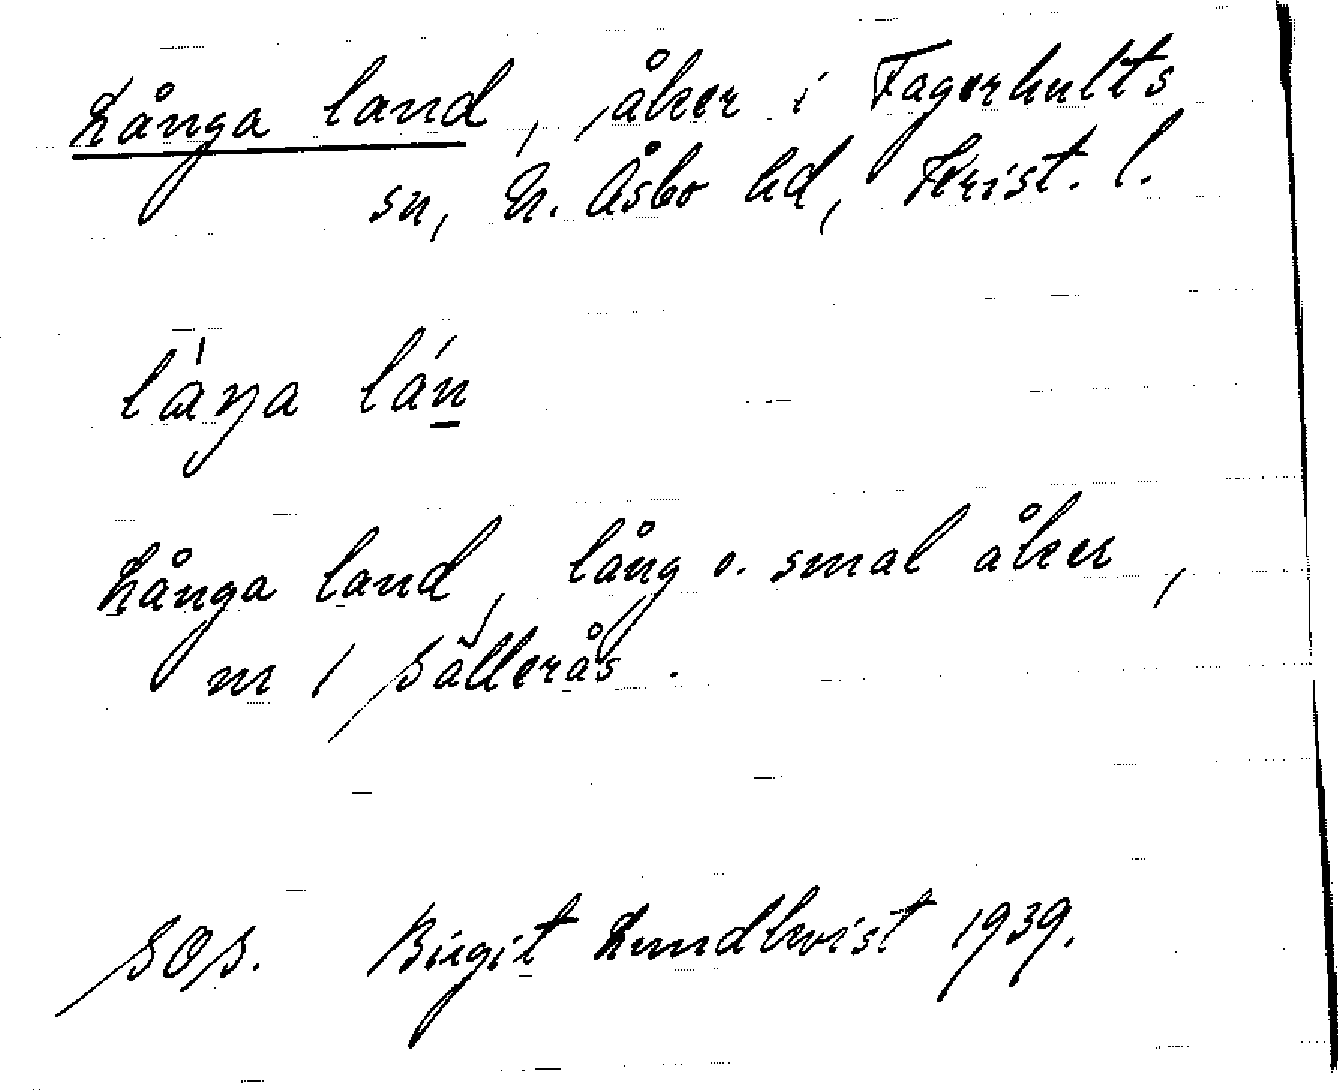 Långa land, åker i Fagerhults
sn, N. Åsbo hd, Krist. l.
lå̀ŋa lán̲
Långa land, lång o. smal åker,
m / Sällerås.
SOS. Birgit Lundkvist 1939.